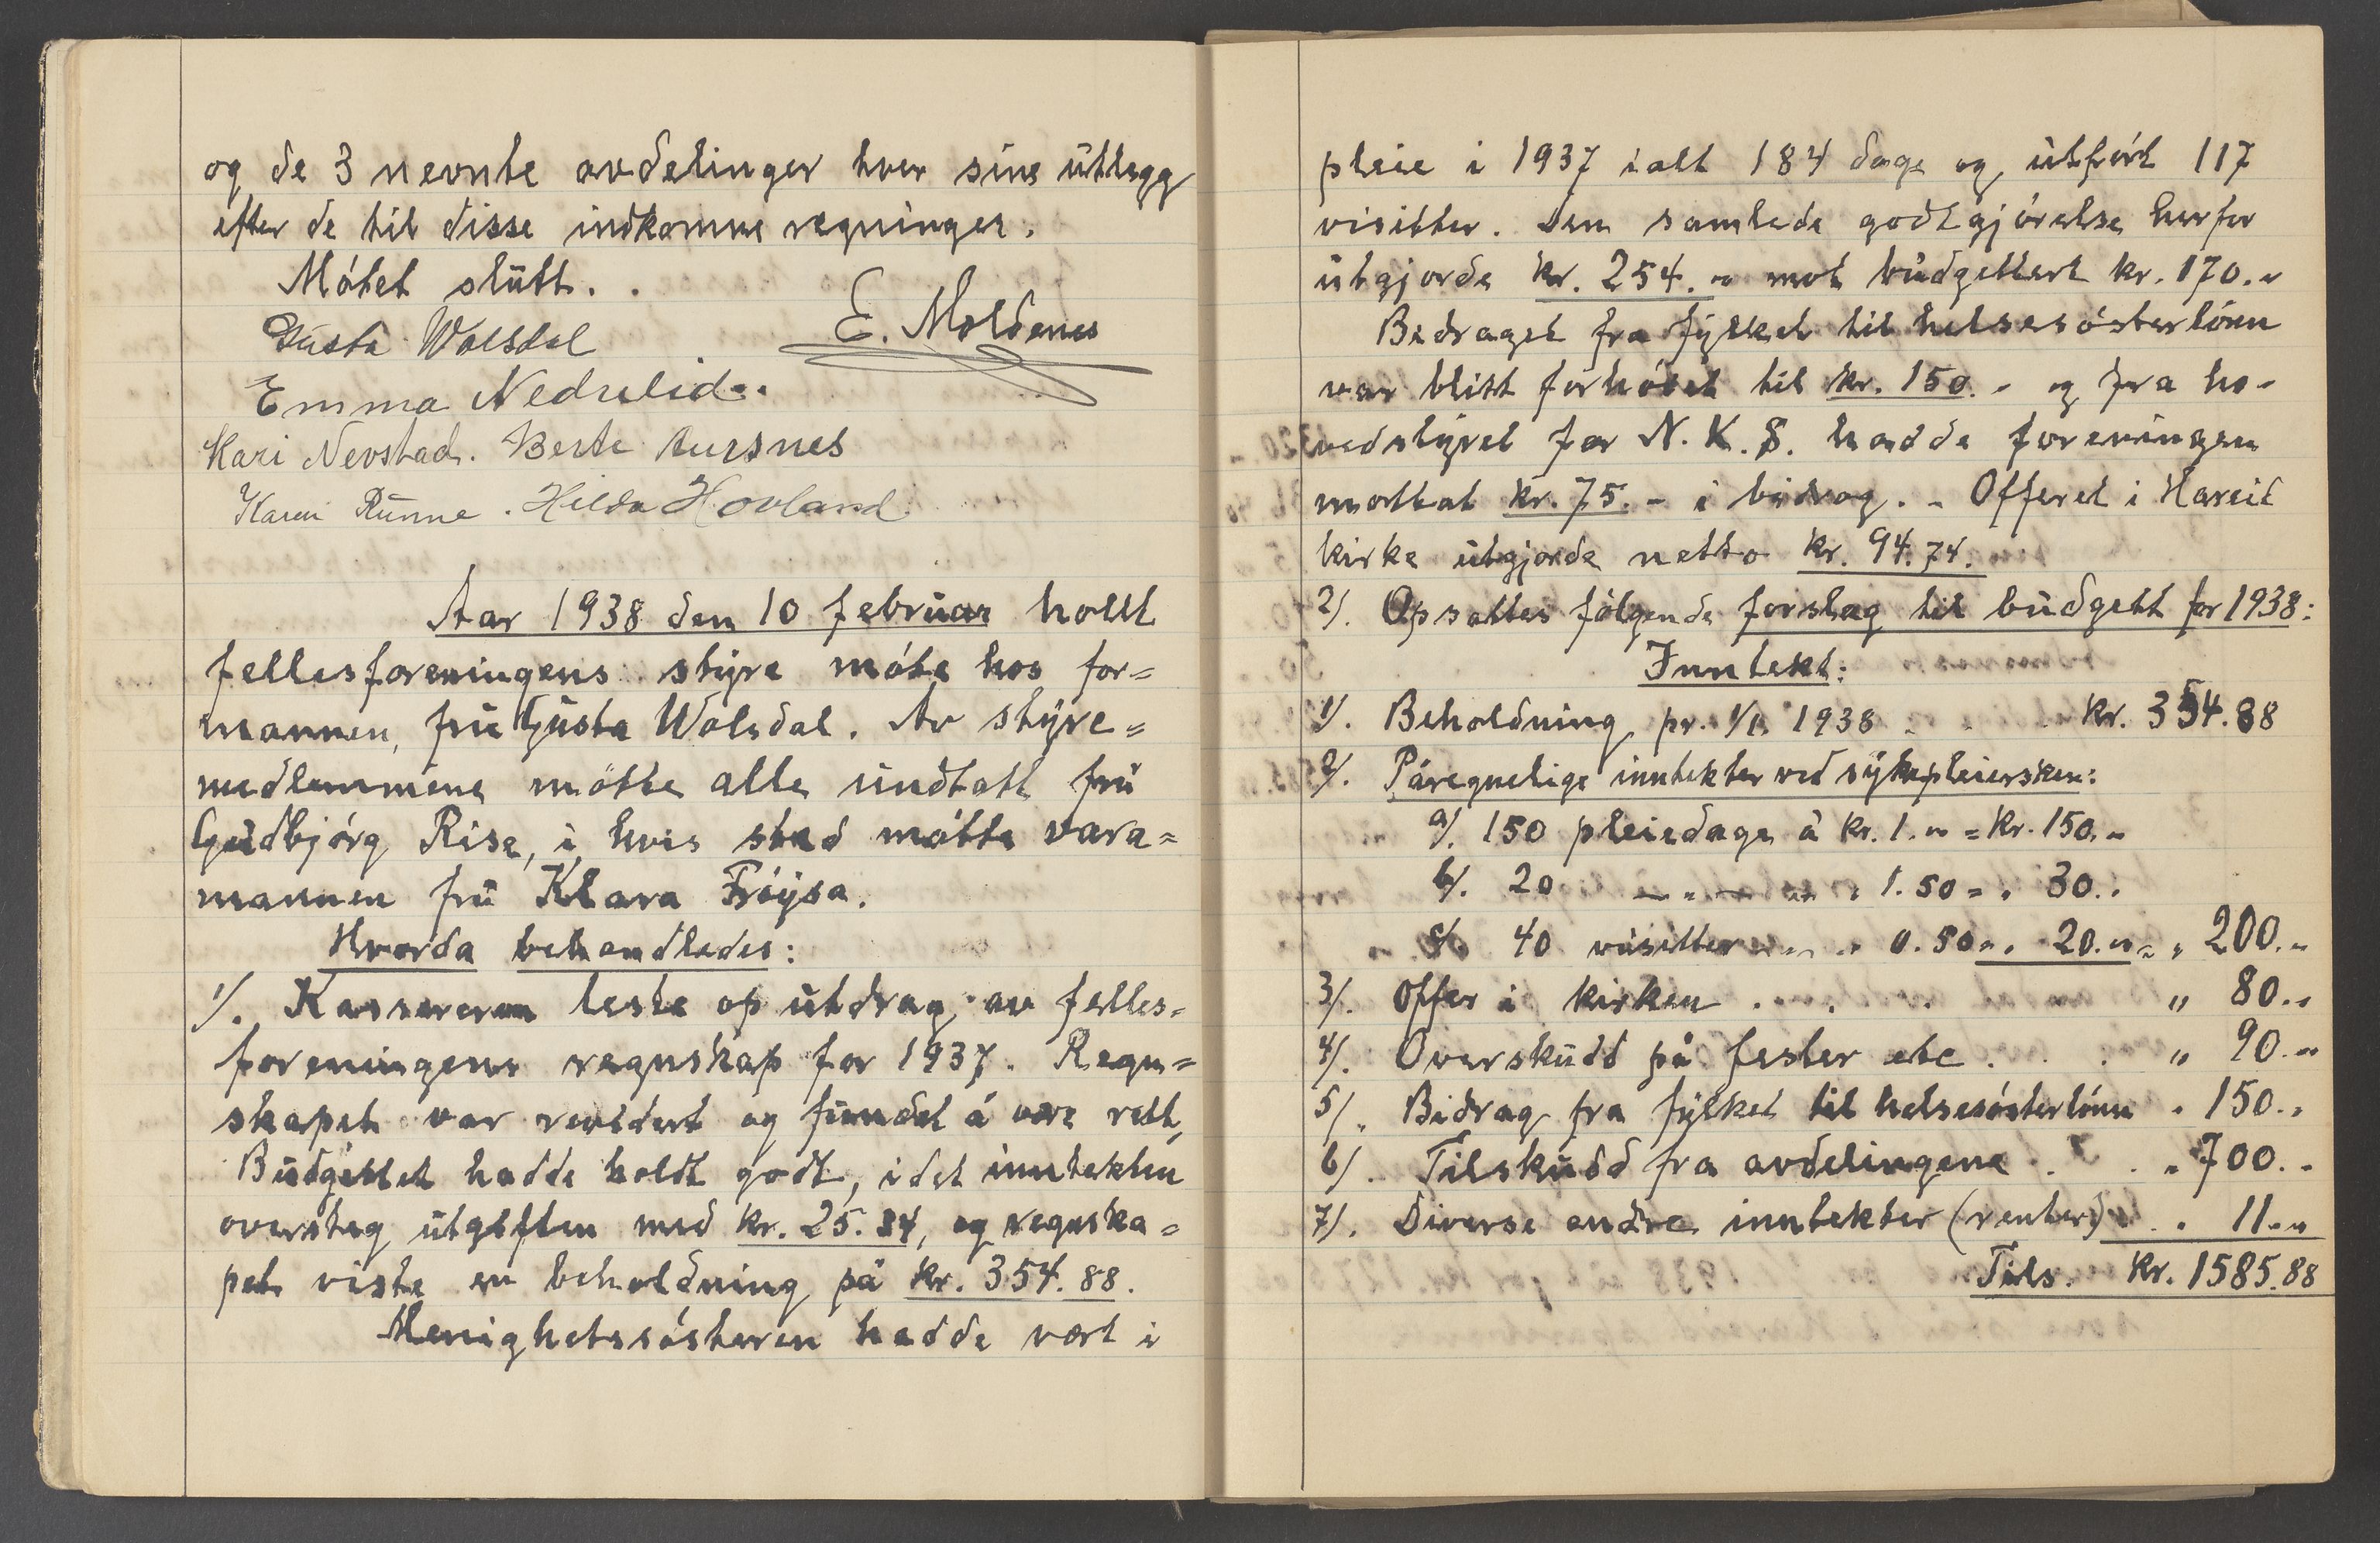 og de 3 nevnte avdelinger hver sine utlegg
efter de til disse indkomne regninger.
Møtet slutt.
Gusta Wolsdal E. Moldenes
Emma Nedrelid.
Kari Nevstad. Berte Aursnes
Karen Runne. Hilda Hovland
Aar 1938 den 10 februar holt
fellesforeningens styre møte hos for=
mannen, fru Gusta Wolsdal. Av styre=
medlemmene møtte alle undtatt fru
Gudbjørg Rise, i hvis sted møtte vara=
mannen fru Klara Frøysa.
Hvorda behandledes:
1/. Kassereren leste op utdrag av felles=
foreningens regnskap for 1937. Regn=
skapet var revidert og fundet å være rett,
Budgettet hadde holdt godt, idet inntekten
oversteg utgiften med kr. 25.34, og regnska=
pet viste en beholdning på kr. 354.88.
Menighetssøsteren hadde vært i
pleie i 1937 ialt 184 dage og utført 117
visitter. Den samlede godtgjørelse herfor
utgjorde kr. 254.- mot budgettert kr. 170.-
Bidraget fra fylket til helsesøsterlønn
var blitt forhøiet til kr. 150.- og fra ho-
vedstyret for N.K.S. hadde foreningen
mottat kr. 75.- i bidrag. - Offeret i Hareid
kirke utgjorde netto kr. 94.74.
2/. Opsattes følgende forslag til budgett for 1938:
Inntekt:
1/. Beholdning pr. 1/1 1938 . . kr. 354.88
2/. Påregnelige inntekter ved sykepleiersken:
a/. 150 pleiedage à kr. 1.- = kr. 150.-
b/. 20 - " - " - " 1.50 = " 30.-
c/. 40 visitter - " - " 0.50 = " 20.- = " 200.-
3/. Offer i kirken . . . " 80.-
4/. Overskudd på fester etc . . . " 90.-
5/. Bidrag fra fylket til helsesøsterlønn " 150.-
6/. Tilskudd fra avdelingene . . . " 700.-
7/. Diverse andre inntekter (renter) . . " 11.-
Tils. kr. 1585.88